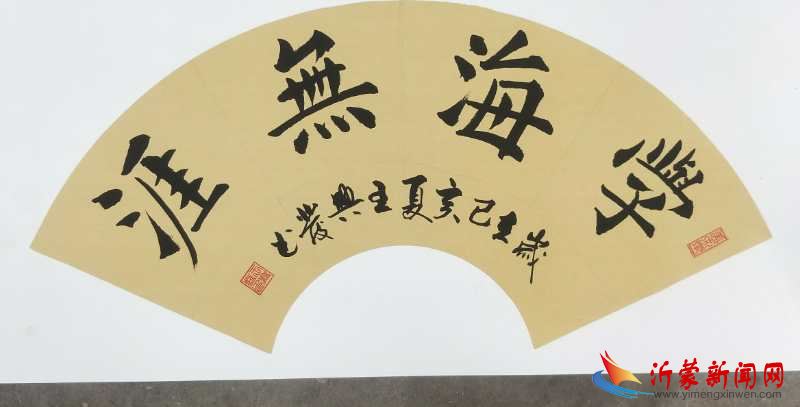 學海無涯
歲在己亥夏王興發書
沂蒙新闻网
www.yimengxinwen.com